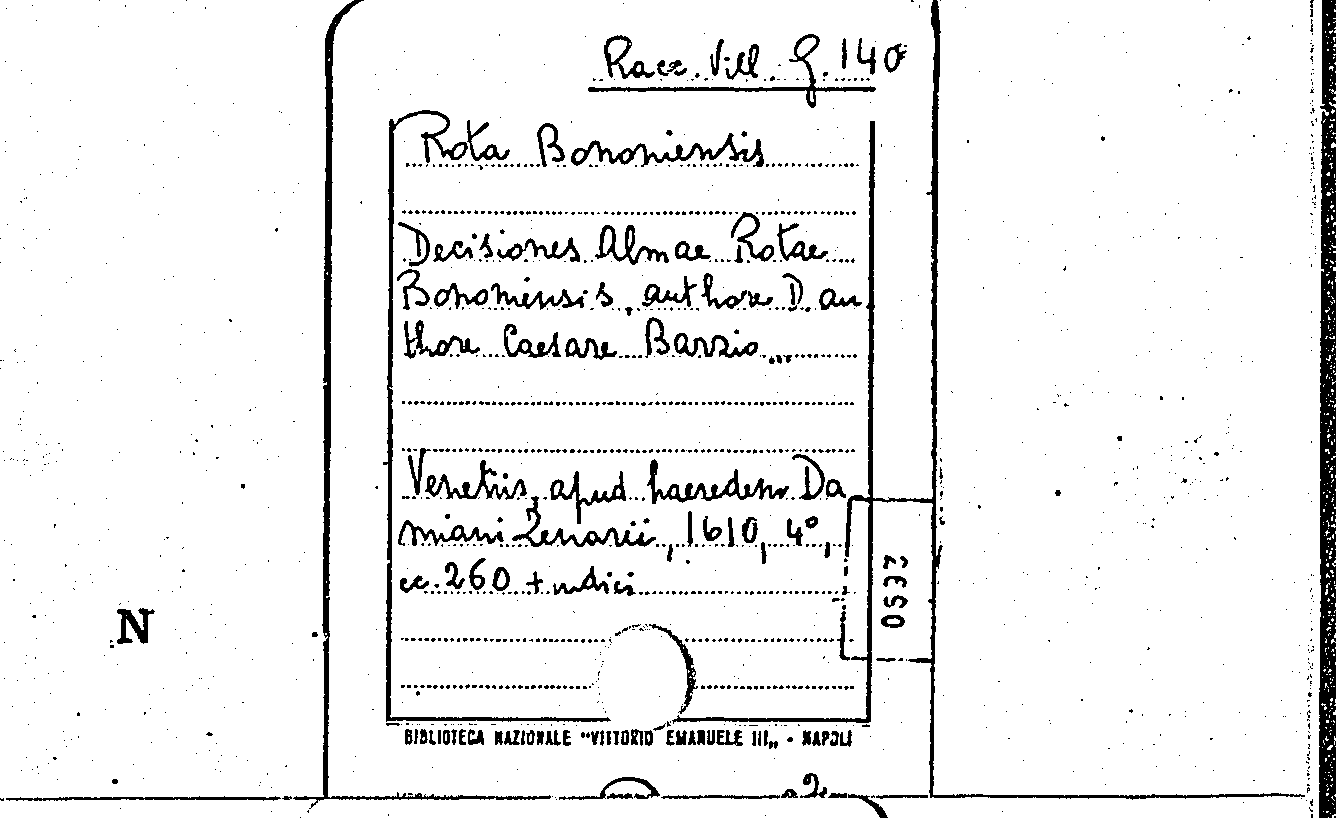 Racc. Vill. G. 140
Rota Bononiensis
Decisiones Almae Rotae
Bononiensis, authore D. au
thore Caesare Barzio...
Venetiis, apud haeredem Da
miani Zenarii, 1610, 4°,
cc. 260 + indici
0533
N
BIBLIOTECA NAZIONALE "VITTORIO EMANUELE III„ - NAPOLI